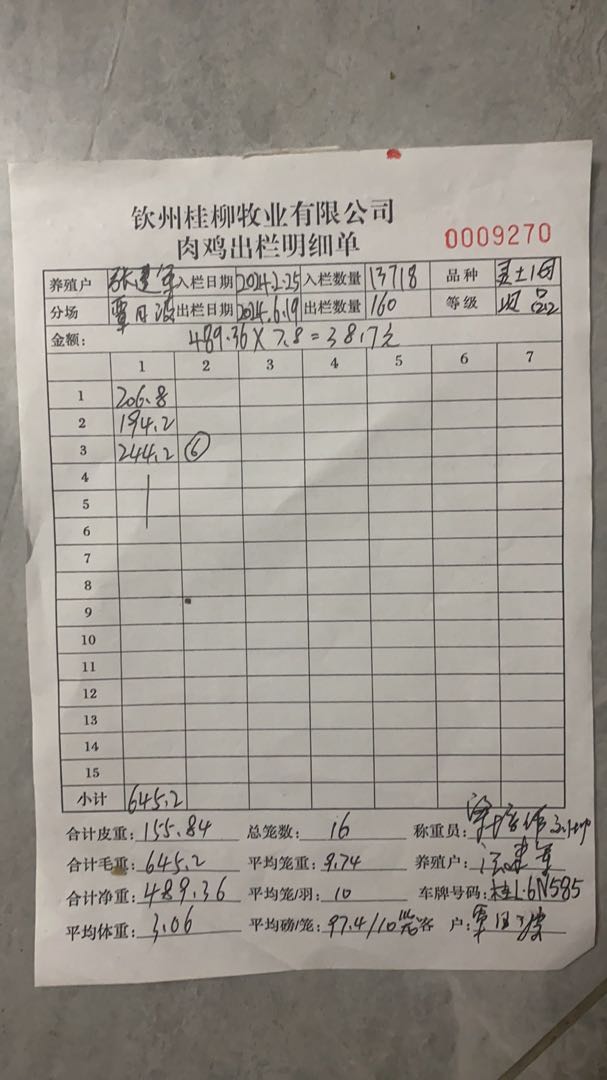 钦州桂柳牧业有限公司
肉鸡出栏明细单
0009270
养殖户 入栏日期 2024.2.25 入栏数量 13718 品种
分场 出栏日期 2024.6.19 出栏数量 160 等级
金额: 489.36×7.8=3817元
1 2 3 4 5 6 7
1 206.8
2 194.2
3 244.2 ⑥
4
5
6
7
8
9
10
11
12
13
14
15
小计 645.2
合计皮重: 155.84 总笼数: 16 称重员:
合计毛重: 645.2 平均笼重: 9.74 养殖户:
合计净重: 489.36 平均笼/羽: 10 车牌号码: 桂L·6N585
平均体重: 3.06 平均磅/笼: 97.4/10 客 户: